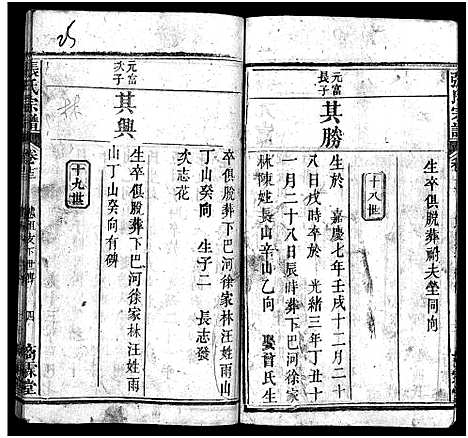 生卒俱脫葬祔夫塋同向
十八世
元富長子
其勝
生於 嘉慶七年壬戌十二月二十
八日戌時卒於 光緒三年丁丑十
一月二十八日辰時葬下巴河徐家
林陳姓長山辛山乙向 娶首氏生
卒俱脫葬下巴河徐家林汪姓雨山
丁山癸向 生子二 長志發
次志花
元富次子
其興
生卒俱脫葬下巴河徐家林汪姓雨
山丁山癸向有碑
十九世
張氏宗譜
四